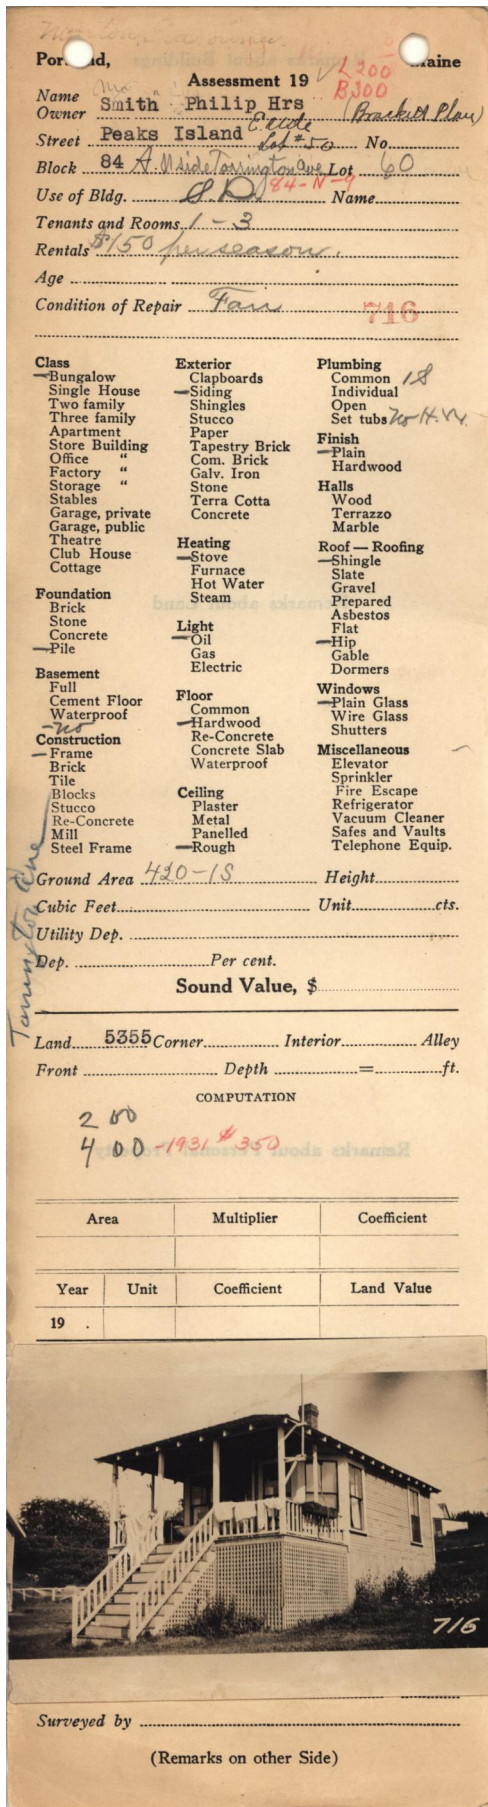 Portland, Maine
Assessment 19 L200
B300
Name
Owner Smith Philip Hrs (Brackett Plan)
Street Peaks Island E. side Lot #50 No.
Block 84 A. N side Torrington Ave Lot 60
Use of Bldg. S D 84-N-9 Name
Tenants and Rooms 1 - 3
Rentals $150 per season.
Age
Condition of Repair Fair 716
Class
Bungalow
Single House
Two family
Three family
Apartment
Store Building
Office "
Factory "
Storage "
Stables
Garage, private
Garage, public
Theatre
Club House
Cottage
Foundation
Brick
Stone
Concrete
Pile
Basement
Full
Cement Floor
Waterproof
-no
Construction
Frame
Brick
Tile
Blocks
Stucco
Re-Concrete
Mill
Steel Frame
Exterior
Clapboards
Siding
Shingles
Stucco
Paper
Tapestry Brick
Com. Brick
Galv. Iron
Stone
Terra Cotta
Concrete
Heating
Stove
Furnace
Hot Water
Steam
Light
Oil
Gas
Electric
Floor
Common
Hardwood
Re-Concrete
Concrete Slab
Waterproof
Ceiling
Plaster
Metal
Panelled
Rough
Plumbing
Common 1S
Individual
Open
Set tubs No H.W.
Finish
Plain
Hardwood
Halls
Wood
Terrazzo
Marble
Roof — Roofing
Shingle
Slate
Gravel
Prepared
Asbestos
Flat
Hip
Gable
Dormers
Windows
Plain Glass
Wire Glass
Shutters
Miscellaneous
Elevator
Sprinkler
Fire Escape
Refrigerator
Vacuum Cleaner
Safes and Vaults
Telephone Equip.
Torrington Ave
Ground Area 420-1S Height
Cubic Feet Unit cts.
Utility Dep.
Dep. Per cent.
Sound Value, $
Land 5355 Corner Interior Alley
Front Depth = ft.
COMPUTATION
200
400 -1931 $350
Area Multiplier Coefficient
Year Unit Coefficient Land Value
19 .
716
Surveyed by
(Remarks on other Side)